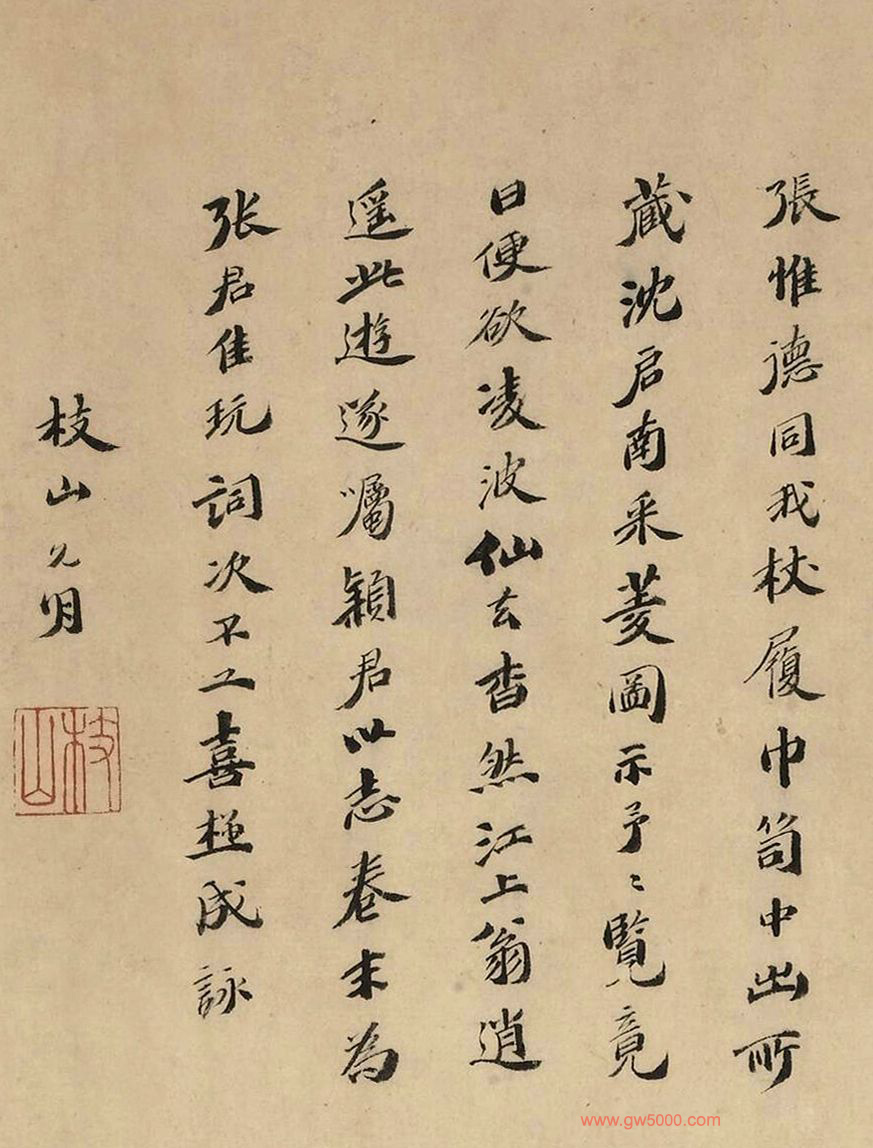 張惟德同我杖履巾笥中出所
藏沈启南采菱圖示予〻覽竟
日便欲凌波仙去杳然江上翁逍
遥此遊遂囑穎君以志卷末为
张君佳玩詞次不工喜極成詠
枝山允明
枝山
www.gw5000.com